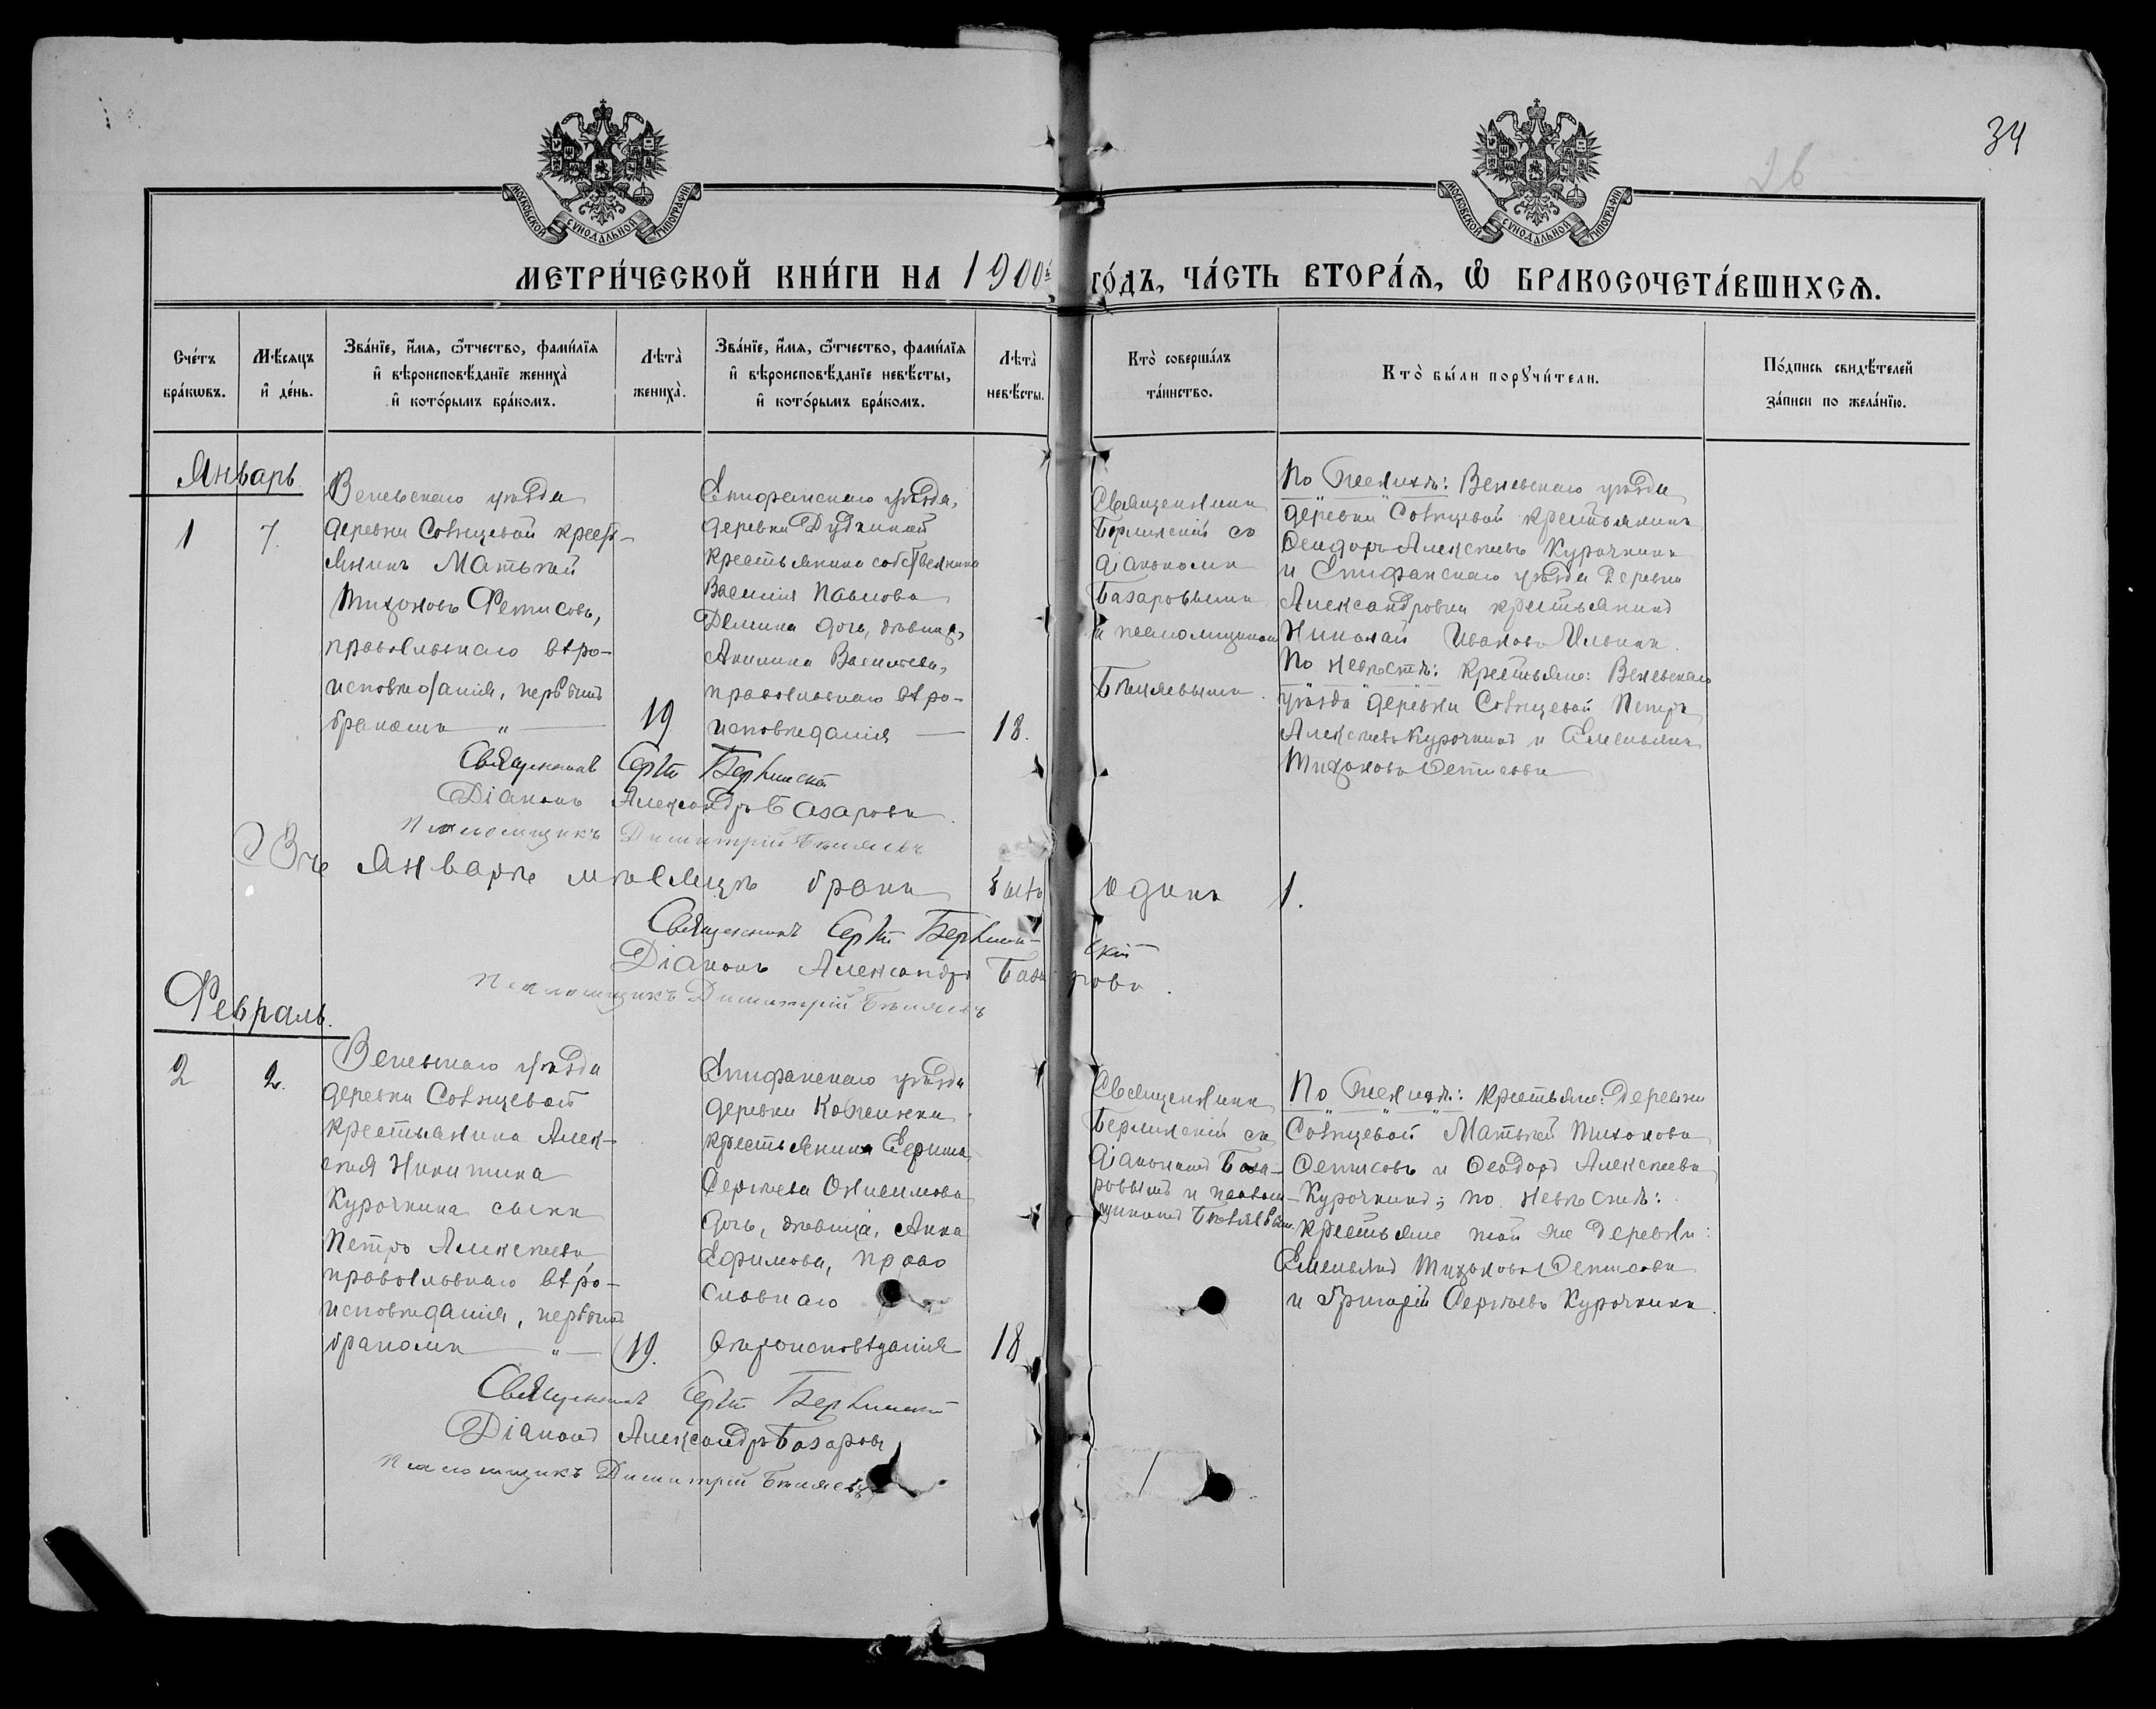 34
26
МОСКОВСКОЙ СѴНОДАЛЬНОЙ ТИПОГРАФІИ
МОСКОВСКОЙ СѴНОДАЛЬНОЙ ТИПОГРАФІИ
МЕТРИ́ЧЕСКОЙ КНИ́ГИ НА 1900й ГО́ДЪ, ЧА́СТЬ ВТОРА́Я, Ѡ БРАКОСОЧЕТА́ВШИХСЯ.
Сче́тъ бра́кѡвъ.
Мѣ́сяцъ и҆ де́нь.
Зва́нїе, и҆́мя, ѻ҆́тчество, фами́лїя
и҆ вѣроисповѣ́данїе жениха̀
и҆ кото́рымъ бра́комъ.
Лѣта̀ жениха̀.
Зва́нїе, и҆́мя, ѻ҆́тчество, фами́лїя
и҆ вѣроисповѣ́данїе невѣ́сты,
и҆ кото́рымъ бра́комъ.
Лѣта̀ невѣ́сты.
Кто̀ соверша́лъ та́инство.
Кто̀ бы́ли порꙋчи́тели.
По́дпись свидѣ́телей за́писи по жела́нїю.
Январь
1
7.
Веневскаго уѣзда
деревни Совнцевой крест-
янинъ Матвѣй
Тихоновъ Фетисовъ,
православнаго вѣро-
исповѣданія, первымъ
бракомъ — " —
19
Епифанскаго уѣзда,
деревни Дудкиной
крестьянина собственника
Василія Павлова
Демина дочь, дѣвица,
Акилина Васильева,
православнаго вѣро-
исповѣданія —
18.
Священникъ
Берлинскій съ
діакономъ
Базаровымъ
и псаломщикомъ
Бѣляевымъ.
По женихѣ: Веневскаго уѣзда
деревни Совнцевой крестьянинъ
Ѳеодоръ Алексѣевъ Курочкинъ
и Епифанскаго уѣзда деревни
Александровки крестьянинъ
Николай Ивановъ Ильинъ.
По невѣстѣ: крестьяне: Веневскаго
уѣзда деревни Совнцевой Петръ
Алексѣевъ Курочкинъ и Емельянъ
Тихоновъ Ѳетисовъ
Священникъ Сергій Берлинскій
Діаконъ Александръ Базаровъ.
Псаломщикъ Димитрій Бѣляевъ
Въ Январѣ мѣсяцѣ бракъ былъ одинъ 1.
Священникъ Сергій Берлинскій
Діаконъ Александръ Базаровъ.
Псаломщикъ Димитрій Бѣляевъ
Февраль.
2
2.
Веневскаго уѣзда
деревни Совнцевой
крестьянина Алек-
сѣя Никитина
Курочкина сынъ
Петръ Алексѣевъ
православнаго вѣро-
исповѣданія, первымъ
бракомъ — " —
19.
Епифанскаго уѣзда
деревни
крестьянина Ефима
Сергѣева Онисимова
дочь, дѣвица, Анна
Ефимова, право
славнаго
вѣроисповѣданія
18
Священникъ
Берлинскій съ
діакономъ База-
ровымъ и псалом-
щикомъ Бѣляевымъ.
По женихѣ: крестьяне: деревни
Совнцевой Матвѣй Тихоновъ
Ѳетисовъ и Ѳеодоръ Алексѣевъ
Курочкинъ; по невѣстѣ:
крестьяне той же деревни:
Емельянъ Тихоновъ Ѳетисовъ
и Григорій Сергѣевъ Курочкинъ.
Священникъ Сергій Берлинскій
Діаконъ Александръ Базаровъ
Псаломщикъ Димитрій Бѣляевъ